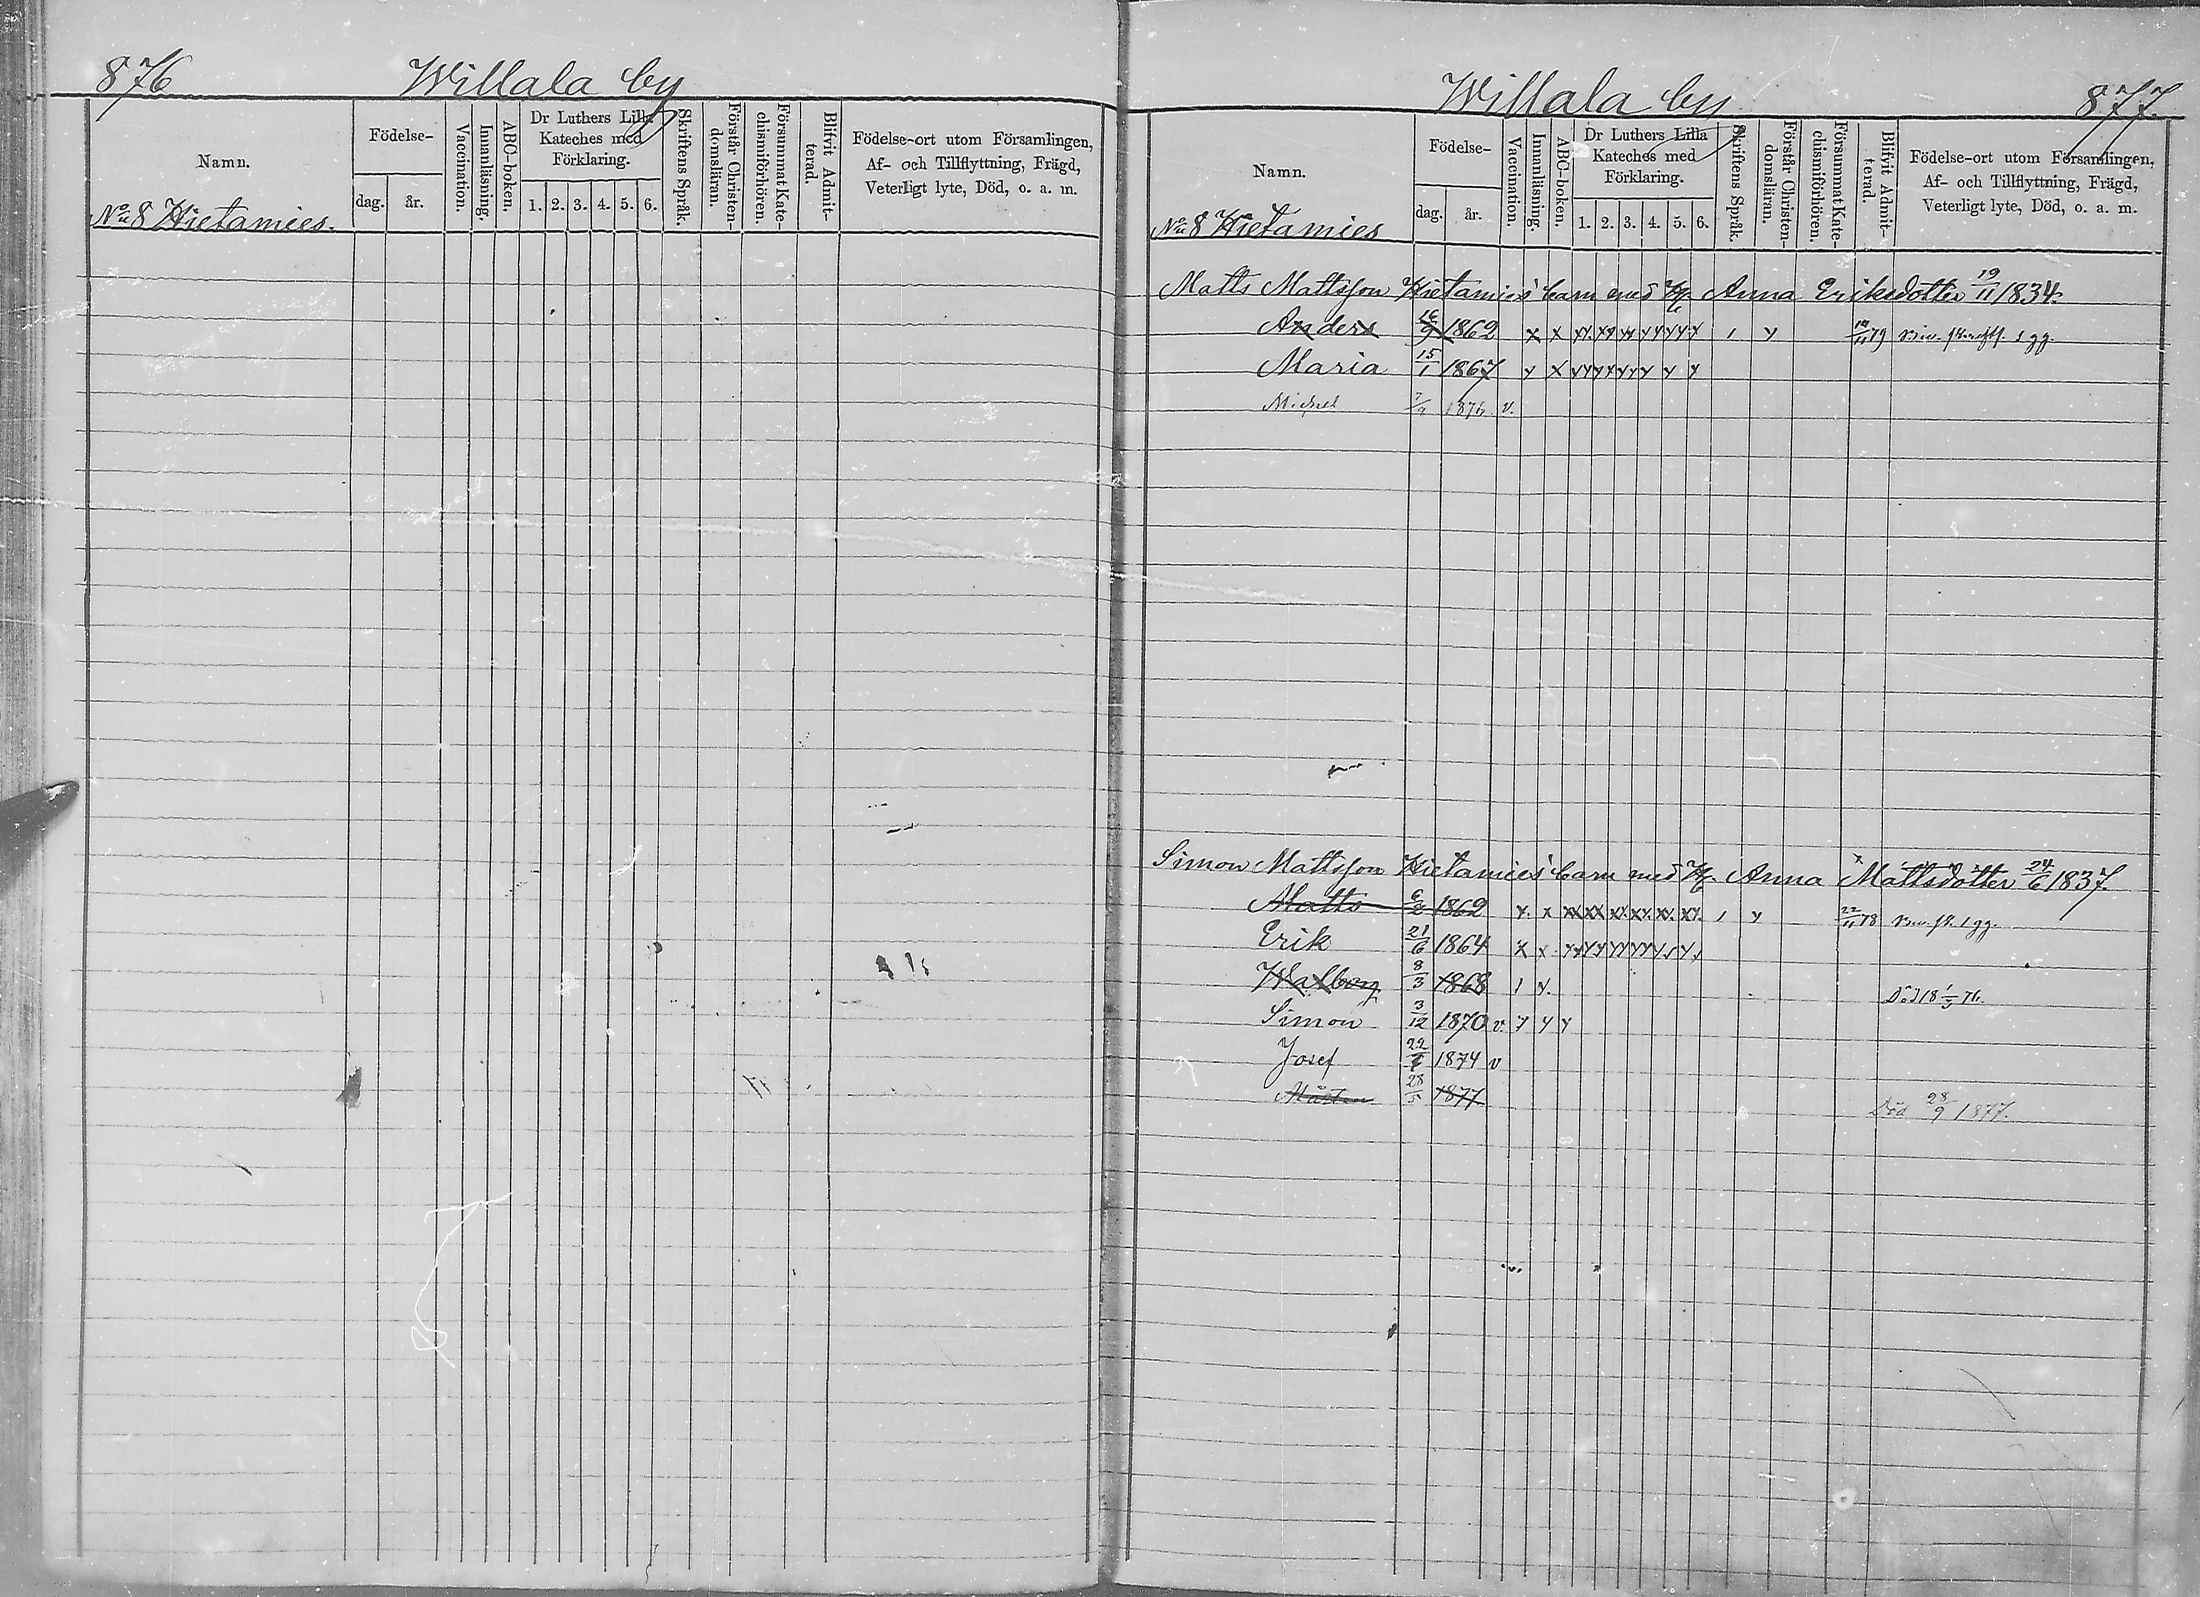 876 Willala by
Namn. Födelse- dag. år. Vaccination. Innanläsning. ABC-boken. Dr Luthers Lilla Kateches med Förklaring. 1. 2. 3. 4. 5. 6. Skriftens Språk. Förstår Christen-domsläran. Försummat Kate-chismiförhören. Blifvit Admit-terad. Födelse-ort utom Församlingen, Af- och Tillflyttning, Frägd, Veterligt lyte, Död, o. a. m.
No 8 Hietamies.
Willala by 877.
Namn. Födelse- dag. år. Vaccination. Innanläsning. ABC-boken. Dr Luthers Lilla Kateches med Förklaring. 1. 2. 3. 4. 5. 6. Skriftens Språk. Förstår Christen-domsläran. Försummat Kate-chismiförhören. Blifvit Admit-terad. Födelse-ort utom Församlingen, Af- och Tillflyttning, Frägd, Veterligt lyte, Död, o. a. m.
No 8 Hietamies
Matts Mattsson Hietamies' barn med H. Anna Eriksdotter 19/11 1834.
Anders 16/9 1862 x x xx xx xx yy yy y 1 y 79 1 gg.
Maria 15/1 1867 y x yy yy yy y y y
Michel 1876 v.
Simon Mattsson Hietamies' barn med H. Anna Mattsdotter 24/6 1837.
Matts 6/2 1862 x x xx xx xx xx xx xx 1 y 22/11 78 1 gg.
Erik 21/6 1864 x x
Walborg 8/3 1868 1 y. Död 18 1/3 76.
Simon 3/12 1870 v. y y y
Josef 1874 v
Mårten 28/5 1877 Död 28/9 1877.